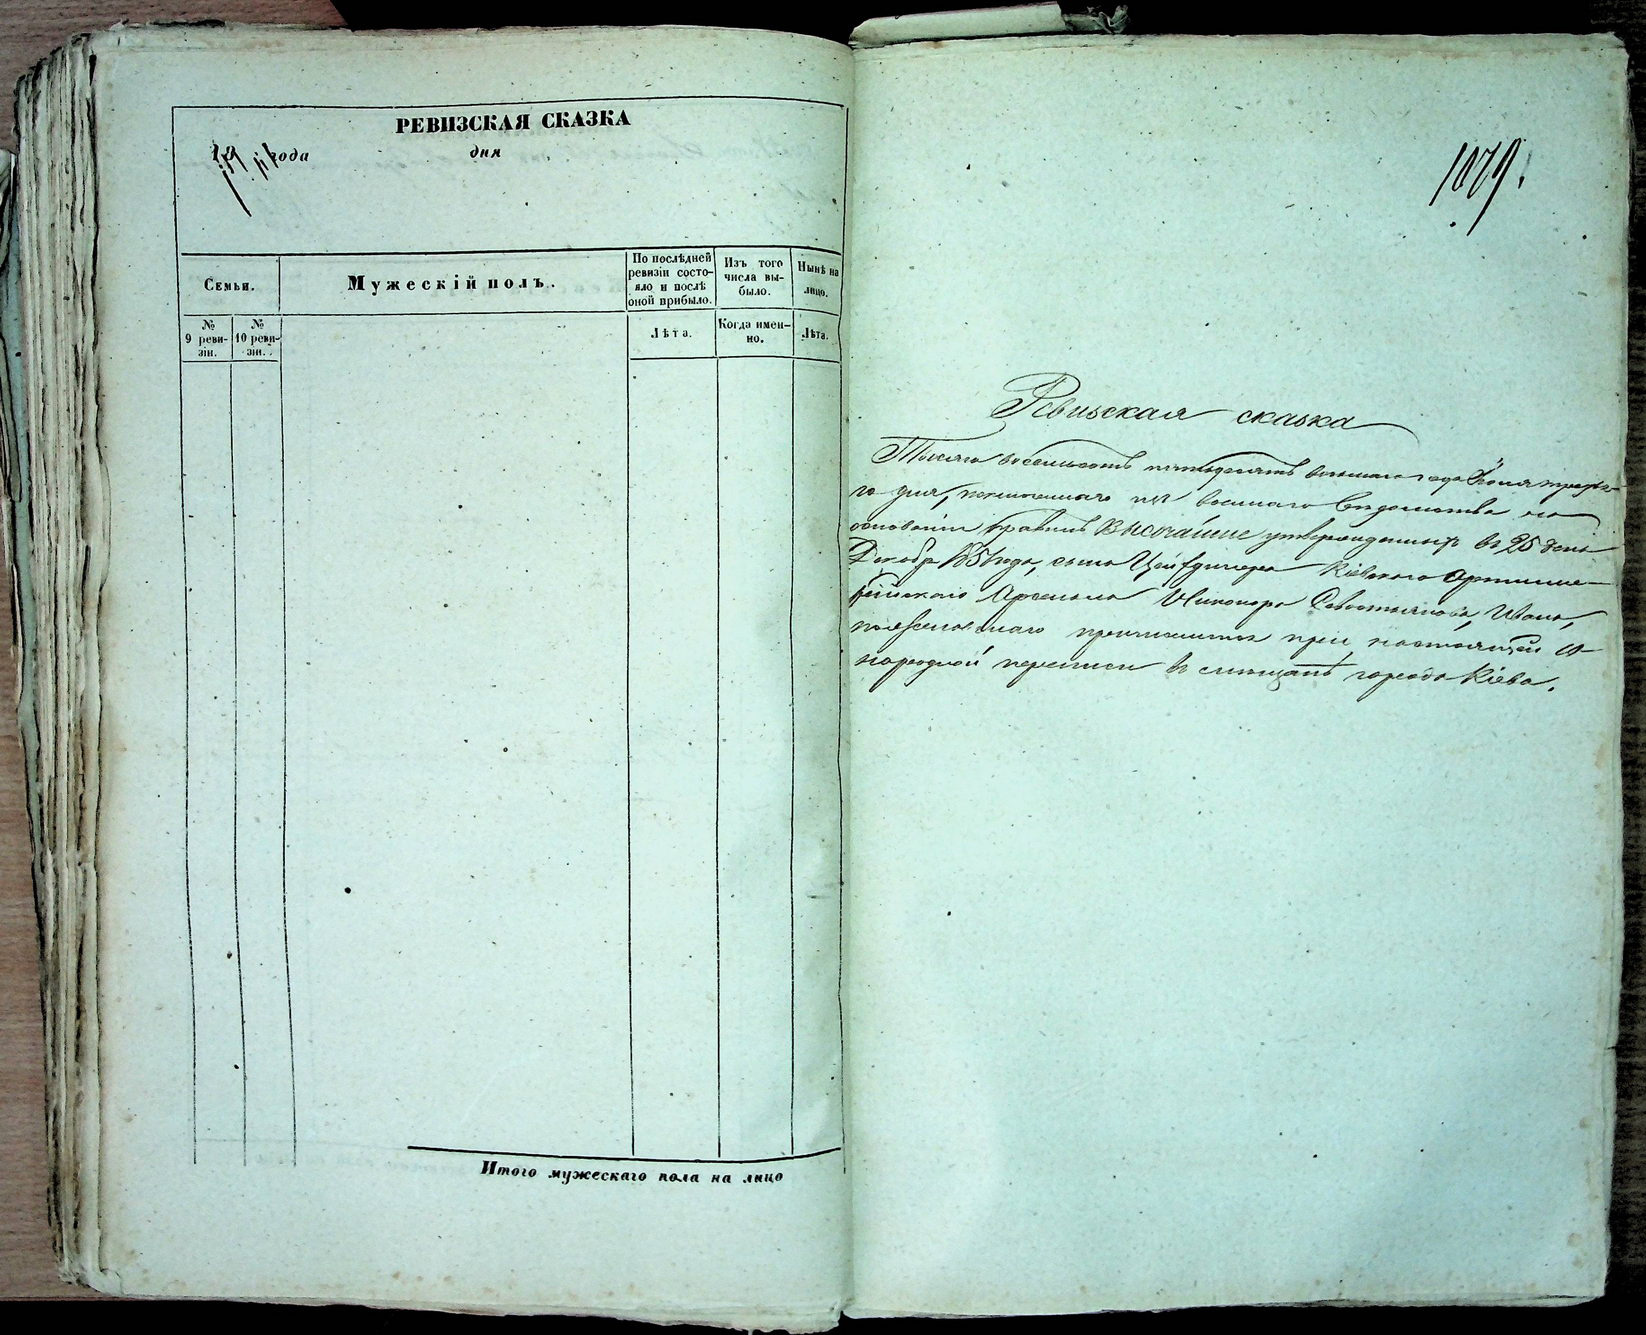 РЕВИЗСКАЯ СКАЗКА
года дня
Семьи.
Мужескій полъ.
По послѣдней ревизіи состо-
яло и послѣ
оной прибыло.
Изъ того
числа вы-
было.
Нынѣ на
лицо.
№
9 реви-
зіи.
№
10 реви-
зіи.
Лѣта.
Когда имен-
но.
Лѣта.
Итого мужескаго пола на лицо
1079.
Ревизская сказка
Тысяча восемьсотъ пятьдесятъ восьмаго года Іюня
го дня, изъ военнаго вѣдомства на
основаніи правилъ Высочайше утвержденныхъ въ 25 день
Декабр. года, сына Кіевскаго Артилле-
рійскаго Арсенала Никонора Севостьянова, Ивана,
при настоящей
народной переписи въ мѣщане города Кіева.